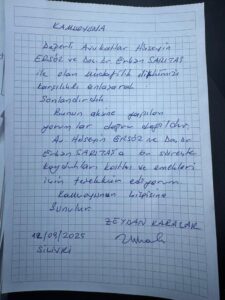 KAMUOYUNA
Değerli Avukatlar Hüseyin
ERSÖZ ve Doç. Dr. Erkan SARITAŞ
ile olan müdafilik ilişkimizi
karşılıklı anlaşarak
Sonlandırdık
Bunun aksine yapılan
yorumlar doğru değildir.
Av. Hüseyin ERSÖZ ve Doç. Dr.
Erkan SARITAŞ'a bu süreçte
koydukları katkı ve emekleri
için teşekkür ediyorum.
Kamuoyunun bilgisine
Sunulur.
ZEYDAN KARALAR
12/09/2025
SİLİVRİ